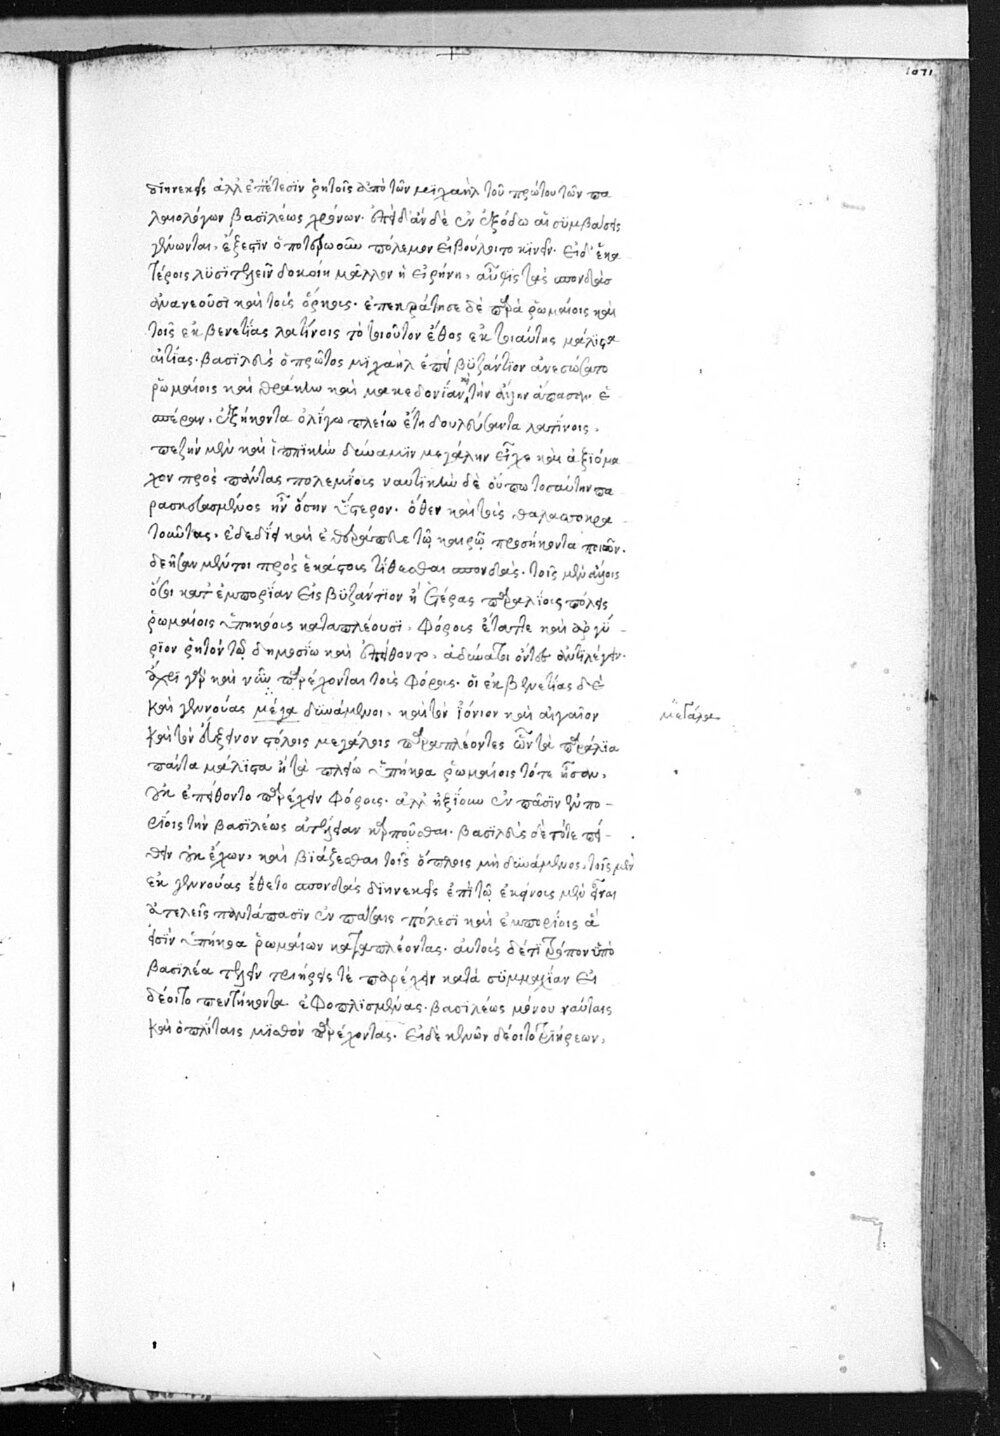 1071
διηνεκεῖς ἀλλ' ἐπ' ἔτεσιν ῥητοῖς ἀπὸ τῶν μιχαὴλ τοῦ πρώτου τῶν πα
λαιολόγων βασιλέως χρόνων. ἐπειδὰν δὲ ἐν ἐξόδω αἱ συμβάσεις
γένωνται, ἔξεστιν ὁποτέρωσοῦν πόλεμον εἰ βούλοιτο κινεῖν. εἰ δ' ἑκα
τέροις λυσιτελεῖν δοκοίη μᾶλλον ἡ εἰρήνη, αὖθις τὰς σπονδὰς
ἀνανεοῦσι καὶ τοὺς ὅρκους. ἐπεκράτησε δὲ παρὰ ῥωμαίοις καὶ
τοῖς ἐκ βενετίας λατίνοις τὸ τοιοῦτον ἔθος ἐκ τοιαύτης μάλιστα
αἰτίας. βασιλεὺς ὁ πρῶτος μιχαὴλ ἐπεὶ βυζάντιον ἀνεσώσατο
ῥωμαίοις καὶ θράκην καὶ μακεδονίαν καὶ τὴν ἄλλην ἅπασαν ἑ
σπέραν, ἑξήκοντα ὀλίγω πλείω ἔτη δουλεύσαντα λατίνοις,
πεζὴν μὲν καὶ ἱππικὴν δύναμιν μεγάλην εἶχε καὶ ἀξιόμα
χον πρὸς πάντας πολεμίους ναυτικὴν δὲ οὔπω τοσαύτην πα
ρασκευασμένος ἦν ὅσην ὕστερον. ὅθεν καὶ τοὺς θαλασσοκρα
τοῦντας, ἐδεδίει καὶ ἐθεράπευε τῶ καιρῶ προσήκοντα ποιῶν.
δεῆσαν μέντοι πρὸς ἑκάστους τίθεσθαι σπονδὰς. τοῖς μὲν ἄλλοις
ὅσοι κατ' ἐμπορίαν εἰς βυζάντιον ἢ ἑτέρας παραλίους πόλεις
ῥωμαίοις ὑπηκόους καταπλέουσι, φόρους ἔταττε καὶ ἀργύ-
ριον ῥητὸν τῶ δημοσίω καὶ ἐπείθοντο, ἀδύνατοι ὄντες ἀντιλέγειν.
ἄχρι γὰρ καὶ νῦν παρέχονται τοὺς φόρους. οἱ ἐκ βενετίας δὲ
καὶ γεννούας μέγα δυνάμενοι, καὶ τὸν ἰόνιον καὶ αἰγαῖον μεγάλα
καὶ τὸν εὔξεινον στόλοις μεγάλοις παραπλέοντες ὧν τὰ παράλια
πάντα μάλιστα ἢ τὰ πλείω ὑπήκοα ῥωμαίοις τότε ἦσαν,
οὐκ ἐπείθοντο παρέχειν φόρους. ἀλλ' ἠξίουν ἐν πᾶσιν ἐμπο-
ρίοις τὴν βασιλέως ἀτέλειαν καρποῦσθαι. βασιλεὺς δὲ τότε πεί-
θειν οὐκ ἔχων, καὶ βιάζεσθαι τοῖς ὅπλοις μὴ δυνάμενος, τοῖς μὲν
ἐκ γεννούας ἔθετο σπονδὰς διηνεκεῖς ἐπὶ τῶ ἐκείνους μὲν εἶναι
ἀτελεῖς παντάπασιν ἐν πάσαις πόλεσι καὶ ἐμπορίοις ἅ
εἰσὶν ὑπήκοα ῥωμαίων καταπλέοντας. αὐτοὺς δὲ
βασιλέα τελεῖν τριήρεις τὲ παρέχειν κατὰ συμμαχίαν εἰ
δέοιτο πεντήκοντα ἐφοπλισμένας. βασιλέως μόνου ναύταις
καὶ ὁπλίταις μισθὸν παρέχοντας. εἰ δὲ κενῶν δέοιτο τριήρεων,